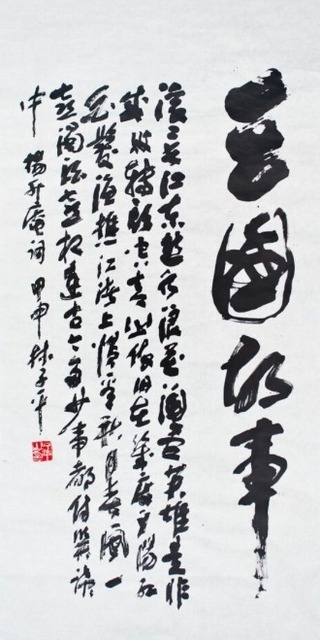 三國故事
滾〻長江東逝水浪花淘盡英雄是非
成敗轉頭空青山依舊在幾度夕陽紅
白髮漁樵江渚上慣看秋月春風一
壺濁酒喜相逢古今多少事都付笑談
中 楊升庵詞 甲申